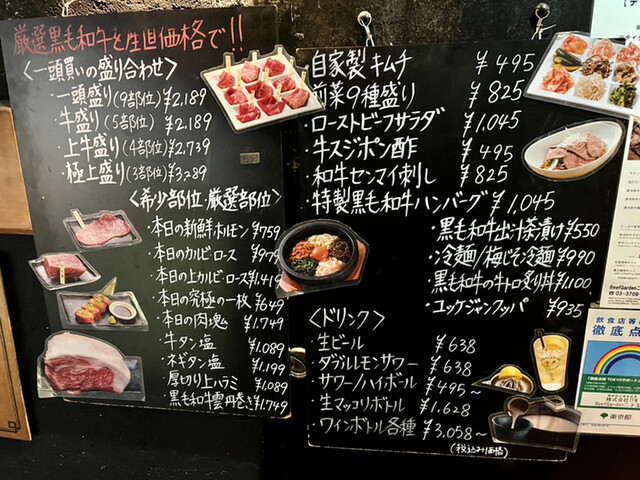 厳選黒毛和牛を生産価格で!!
〈一頭買いの盛り合わせ〉
・一頭盛り(9部位) ¥2,189
・牛盛り(5部位) ¥2,189
・上牛盛り(4部位) ¥2,739
・極上盛り(3部位) ¥3,289
〈希少部位・厳選部位〉
・本日の新鮮ホルモン ¥759
・本日のカルビ・ロース ¥979
・本日の上カルビ・ロース ¥1,419
・本日の究極の一枚 ¥649
・本日の肉塊 ¥1,749
・牛タン塩 ¥1,089
・ネギタン塩 ¥1,199
・厚切り上ハラミ ¥1,089
・黒毛和牛雲丹巻き ¥1,749
・自家製キムチ ¥495
前菜9種盛り ¥825
・ローストビーフサラダ ¥1,045
・牛スジポン酢 ¥495
・和牛センマイ刺し ¥825
・特製黒毛和牛ハンバーグ ¥1,045
・黒毛和牛出汁茶漬け ¥550
・冷麺/梅じそ冷麺 ¥990
・黒毛和牛の牛トロ炙丼 ¥1,100
・ユッケジャンクッパ ¥935
〈ドリンク〉
・生ビール ¥638
・ダブルレモンサワー ¥638
・サワー/ハイボール ¥495~
・生マッコリボトル ¥1,628
・ワインボトル各種 ¥3,058~
(税込み価格)
飲食店等
徹底点
東京都